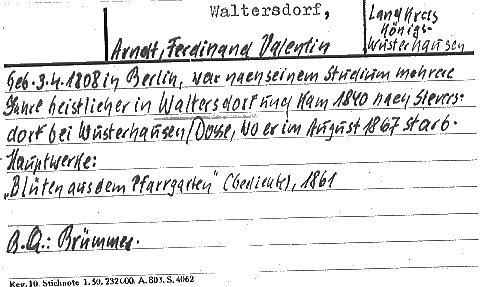 Waltersdorf,
Landkreis
Königs-
Wusterhausen
Arndt, Ferdinand Valentin
Geb. 3.4.1808 in Berlin, war nach seinem Studium mehrere
Jahre Geistlicher in Waltersdorf und kam 1840 nach Sievers-
dorf bei Wusterhausen/Dosse, wo er im August 1867 starb.
Hauptwerke:
„Blüten aus dem Pfarrgarten" (Gedichte), 1861
B.Q.: Brümmer.
Kev. 10. Stichnote 1. 50. 232000. A. 803. S. 4062